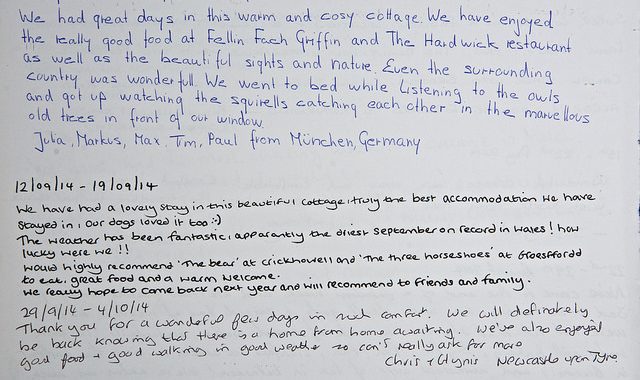 We had great days in this warm and cosy cottage. We have enjoyed
the really good food at Fellin Fach Griffin and The Hardwick restaurant
as well as the beautiful sights and nature. Even the surrounding
country was wonderfull. We went to bed while listening to the owls
and got up watching the squirells catching each other in the marvellous
old trees in front of our window.
Julia, Markus, Max, Tim, Paul from München, Germany
12/09/14 - 19/09/14
We have had a lovely stay in this beautiful cottage, truly the best accommodation we have
stayed in, our dogs loved it too :-)
The weather has been fantastic, apparantly the driest september on record in wales! how
lucky were we !!
would highly recommend 'The bear' at crickhowell and 'The three horseshoes' at Groesffordd
to eat. great food and a warm welcome.
we really hope to come back next year and will recommend to friends and family.
29/9/14 - 4/10/14
Thank you for a wonderful few days in such comfort. We will definately
be back knowing that there is a home from home awaiting. We've also enjoyed
good food + good walking in good weather so can't really ask for more
Chris + Glynis Newcastle upon Tyne